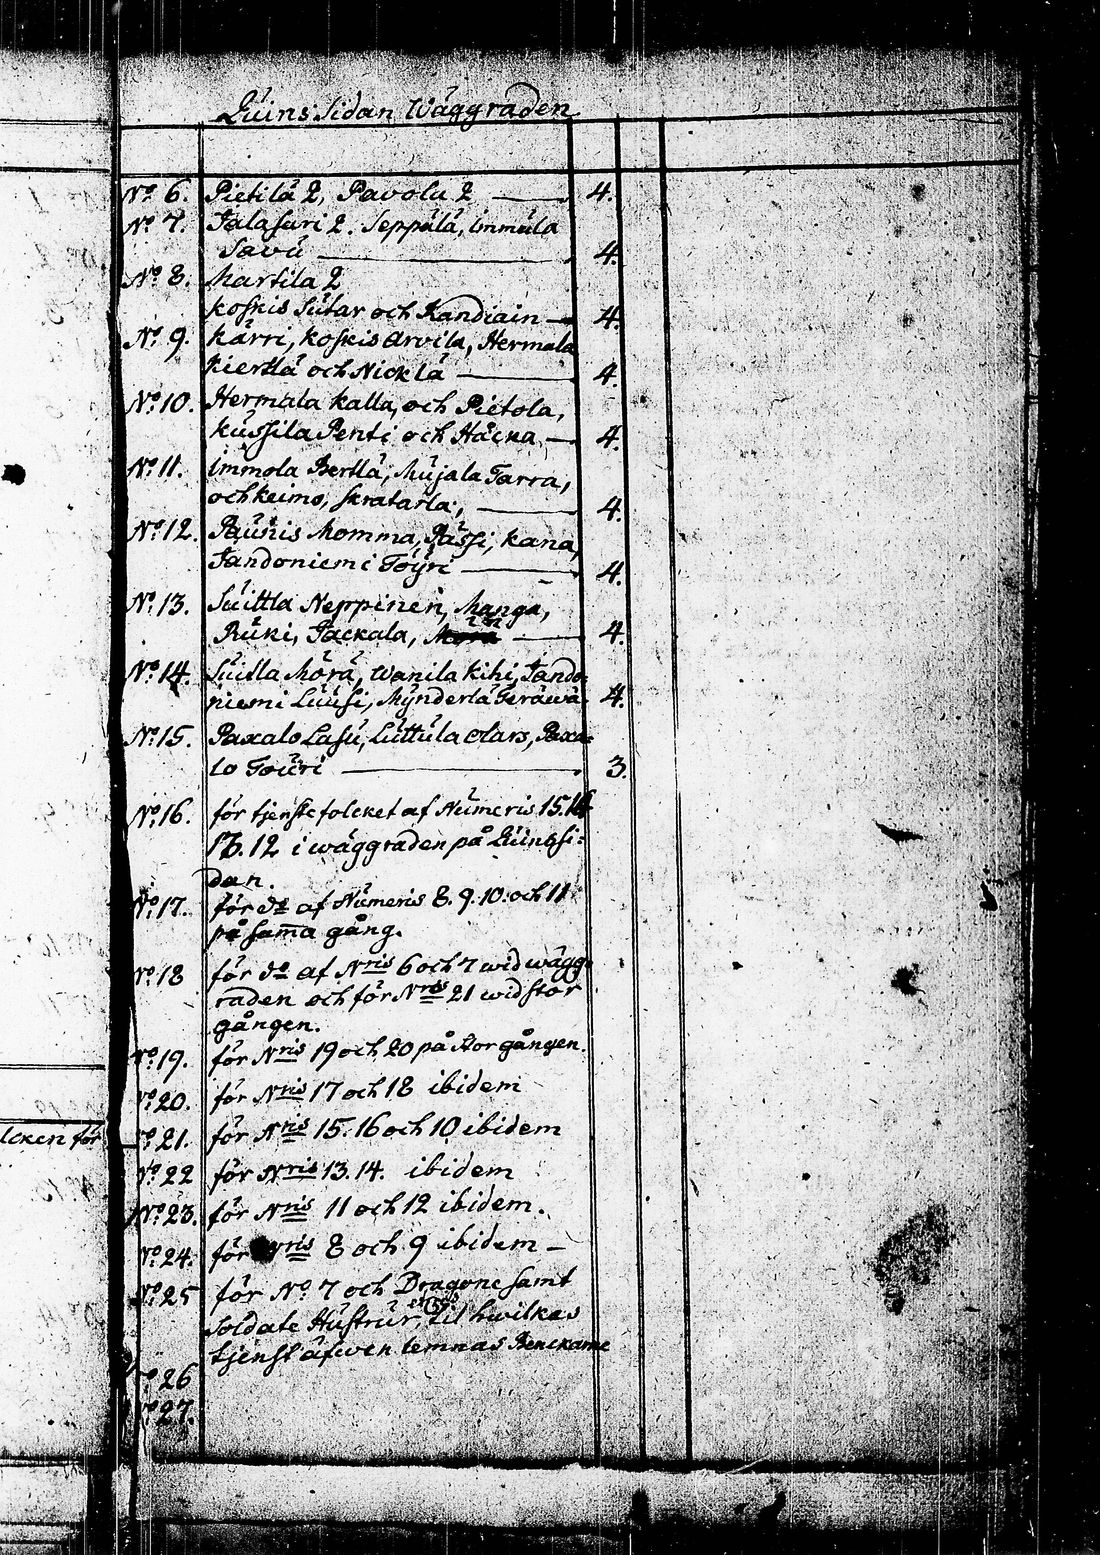 Qwins Sidan Wäggraden
No 6. Pietilä 2, Pavolu 2 — 4.
No 7. Jalasuri 2. Seppälä, Immula
Savu — 4.
No 8. Martila 2
koskis Sutar och Kandiain — 4.
No 9. Kärri, koskis Arvila, Hermala
Kiertlä och Nicklä — 4.
No 10. Hermala Kalla, och Pietola,
kussila Penti och Häcka — 4.
No 11. Immola Bertlä, Mujala Tarra,
och keimo, skratarla, — 4.
No 12. Paunis Momma, Pässi, kana,
Jandoniemi Töyri — 4.
No 13. Suittla Neppinen, Manga,
Ruki, Jackala, — 4.
No 14. Suitla Mörä, Wanila Kihi, Jando-
niemi Luusi, Mynderlä Teräwä. 4.
No 15. Paxalo Lasu, Luttula olars, Paxa-
lo Touri — 3.
No 16. för tjenstefolcket af Numeris 15. 14
13. 12 i wäggraden på Qwinssi-
dan.
No 17. för do af Numeris 8. 9. 10. och 11
på samma gång.
No 18 för do af Nris 6 och 7 wid wägg-
raden och för Nris 21 wid stor
gången.
No 19. för Nris 19 och 20 på Storgången.
No 20. för Nris 17 och 18 ibidem
No 21. för Nris 15. 16 och 10 ibidem
No 22 för Nris 13. 14. ibidem
No 23. för Nris 11 och 12 ibidem.
No 24. för Nris 8 och 9 ibidem —
No 25 för No 7 och Dragone samt
soldate Hustrur, til hwilkas
tjenst äfwen lemnas Benckarne
No 26
No 27.
lcken för